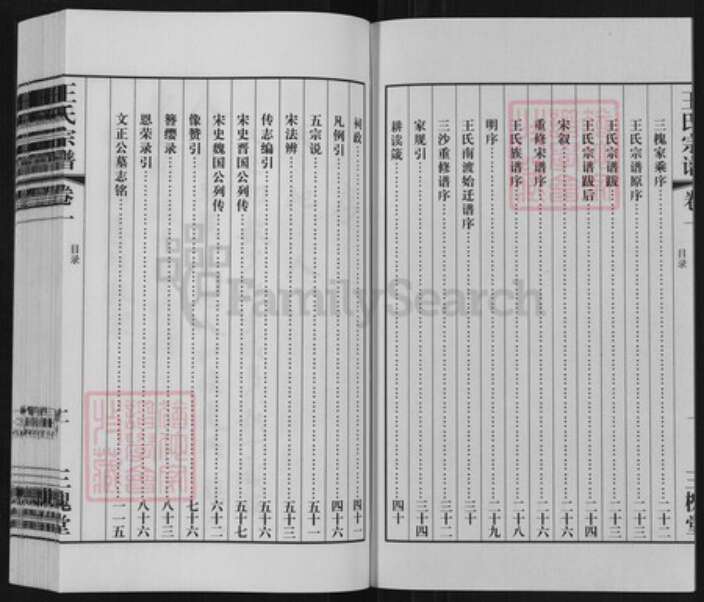 王氏宗谱 卷一 目录 三槐堂
三槐家乘序 二十二
王氏宗谱原序 二十三
王氏宗谱跋 二十三
王氏宗谱跋后 二十四
宋叙 二十六
重修宋谱序 二十六
王氏族谱序 二十八
明序 二十九
王氏南渡始迁谱序 三十
三沙重修谱序 三十二
家规引 三十四
耕读箴 四十
祠政 四十一
凡例引 四十六
五宗说 五十一
宋法辨 五十三
传志编引 五十六
宋史晋国公列传 五十七
宋史魏国公列传 六十二
像赞引 七十六
簪缨录 八十三
恩荣录引 八十六
文正公墓志铭 一一五
王氏宗谱 卷一 目录 三槐堂
FamilySearch